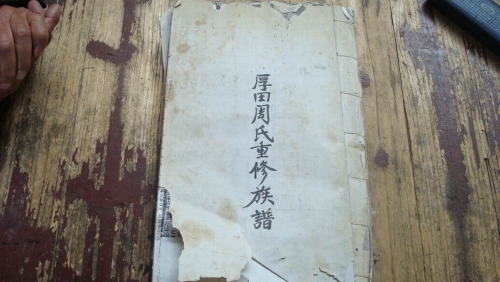 厚田周氏重修族譜